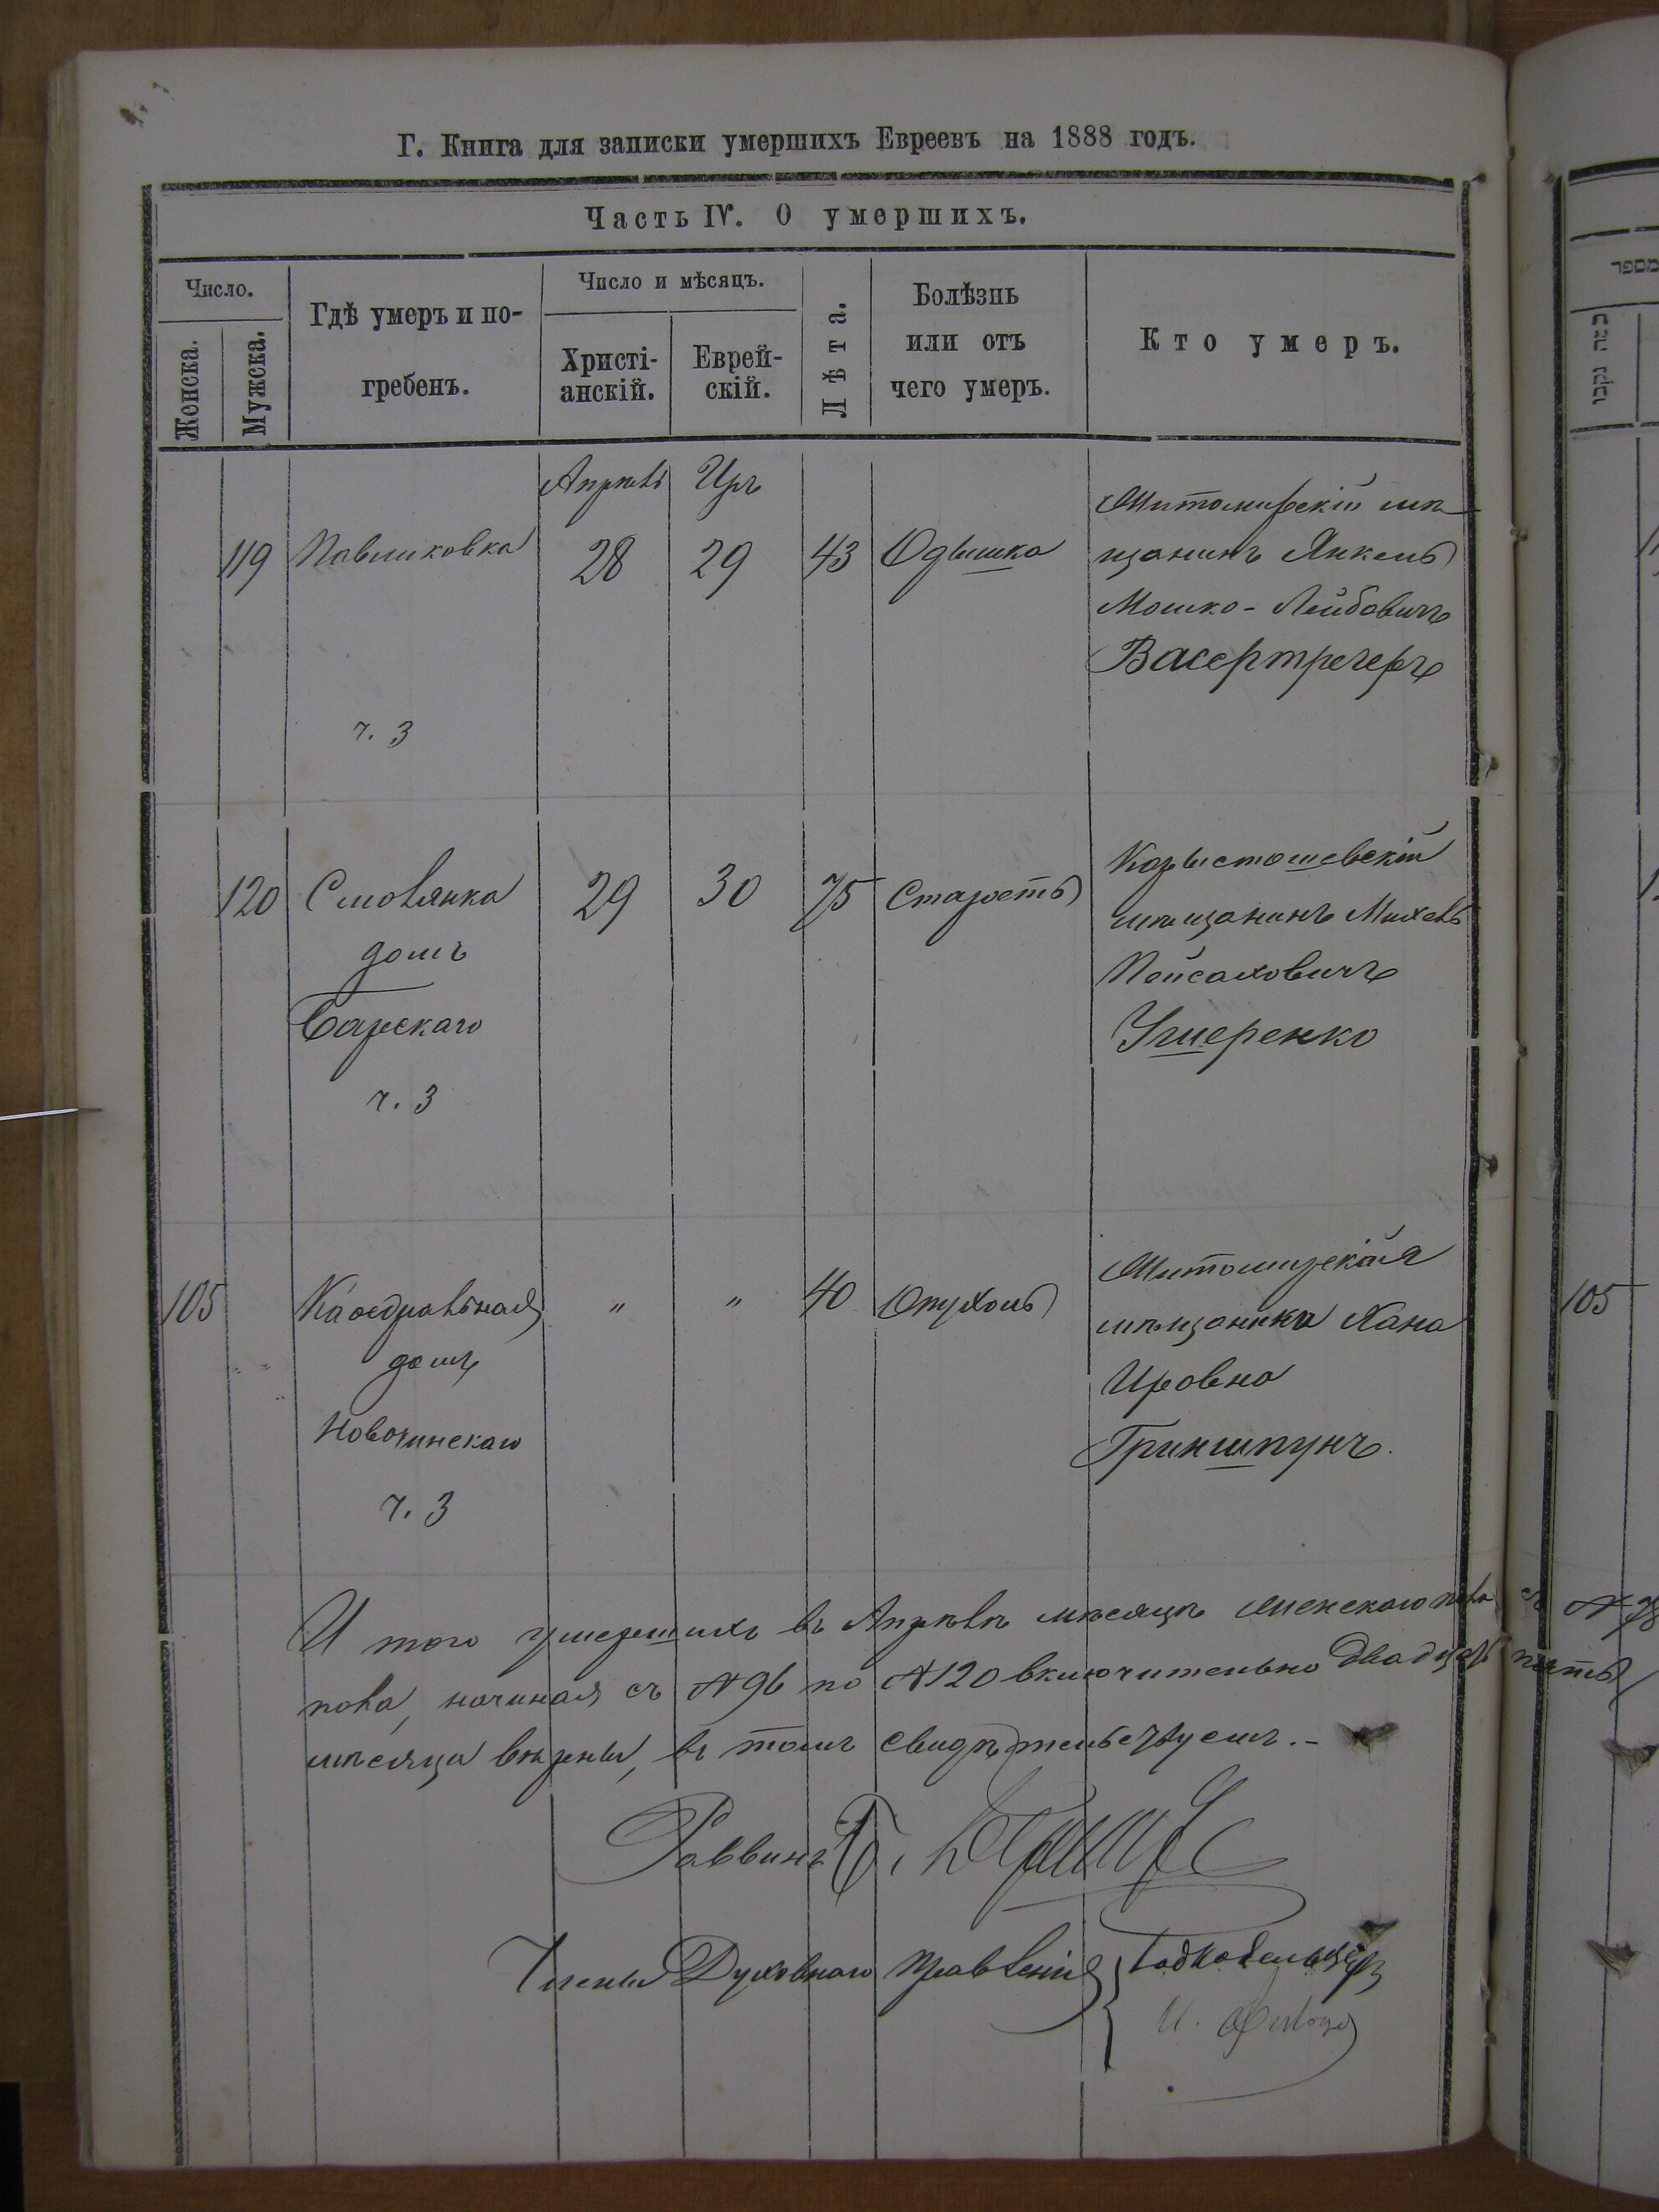 Г. Книга для записки умершихъ Евреевъ на 1888 годъ.
Часть IV. О умершихъ.
Число.
Женска.
Мужска.
Гдѣ умеръ и по-
гребенъ.
Число и мѣсяцъ.
Христі-
анскій.
Еврей-
скій.
Лѣта.
Болѣзнь
или отъ
чего умеръ.
Кто умеръ.
מספר
Апрѣль Иръ
119 Павликовка 28 29 43 Одышка
Житомирскій мѣ-
щанинъ Янкель
Мошко-Лейбовичъ
Васертрегеръ
ч. 3
120 Смолянка 29 30 75 Старость
домъ
Барскаго
ч. 3
Коростошевскій
мѣщанинъ Михель
Пейсаховичъ
Ушеренко
105 Каѳедральная " " 40 Опухоль
домъ
Новочинскаго
ч. 3
Житомирская
мѣщанка Хана
Ировна
Гриншпунъ.
105
И того умершихъ въ Апрѣлѣ мѣсяцѣ женскаго пола съ №
пола, начиная съ №96 по №120 включительно двадцать пять
мѣсяца вѣрны, въ томъ свидѣтельствуемъ.-
Раввинъ
Члены Духовнаго Правленія